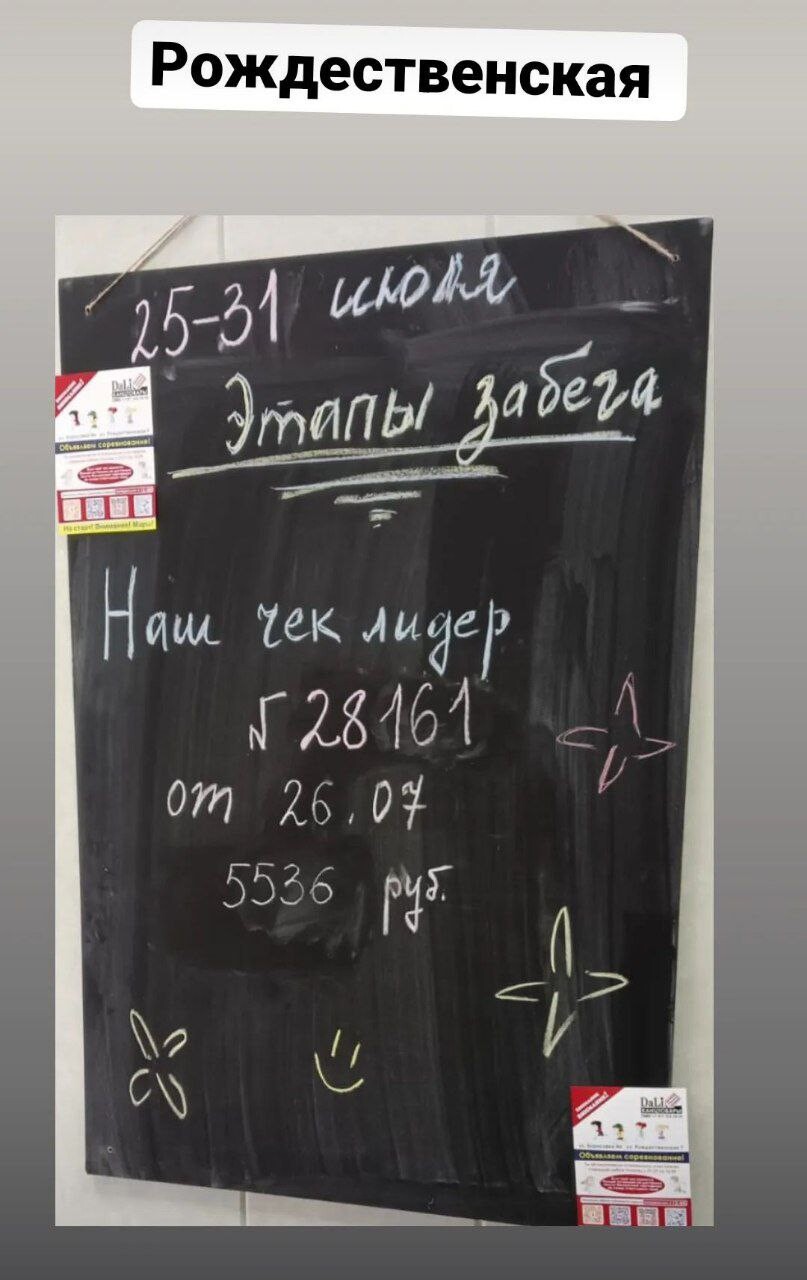 Рождественская
25-31 июля
Этапы забега
DaLi
КАНЦТОВАРЫ
Объявляем соревнование!
На старт! Внимание! Марш!
Наш чек лидер
N 28161
от 26.07
5536 руб.
DaLi
КАНЦТОВАРЫ
Объявляем соревнование!